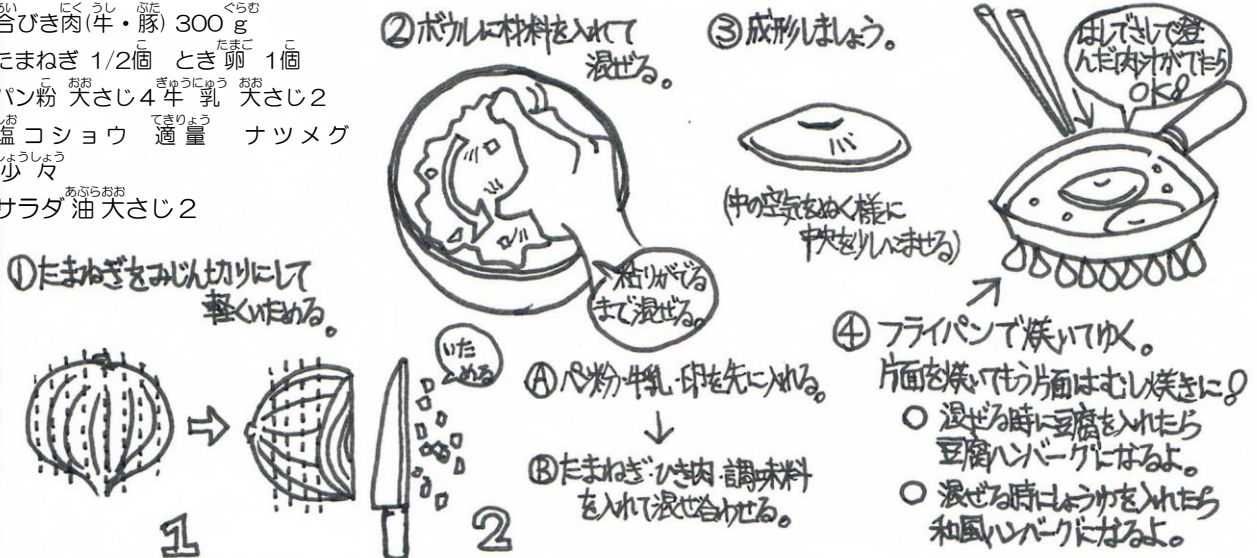 合びき肉(牛・豚) 300g
たまねぎ 1/2個 とき卵 1個
パン粉 大さじ4牛乳 大さじ2
塩コショウ 適量 ナツメグ
少々
サラダ油大さじ2
①たまねぎをみじん切りにして
軽くいためる。
1
2
いた
める
②ボウルに材料を入れて
混ぜる。
粘りがでる
まで混ぜる。
Ⓐパン粉・牛乳・卵を先に入れる。
↓
Ⓑたまねぎ・ひき肉・調味料
を入れて混ぜ合わせる。
③成形しましょう。
(中の空気をぬく様に
中央を少しへこませる)
はしでさして澄
んだ肉汁がでたら
OK!
④フライパンで焼いてゆく。
片面を焼いてもう片面はむし焼きに!
○混ぜる時に豆腐を入れたら
豆腐ハンバーグになるよ。
○混ぜる時にしょうゆを入れたら
和風ハンバーグになるよ。